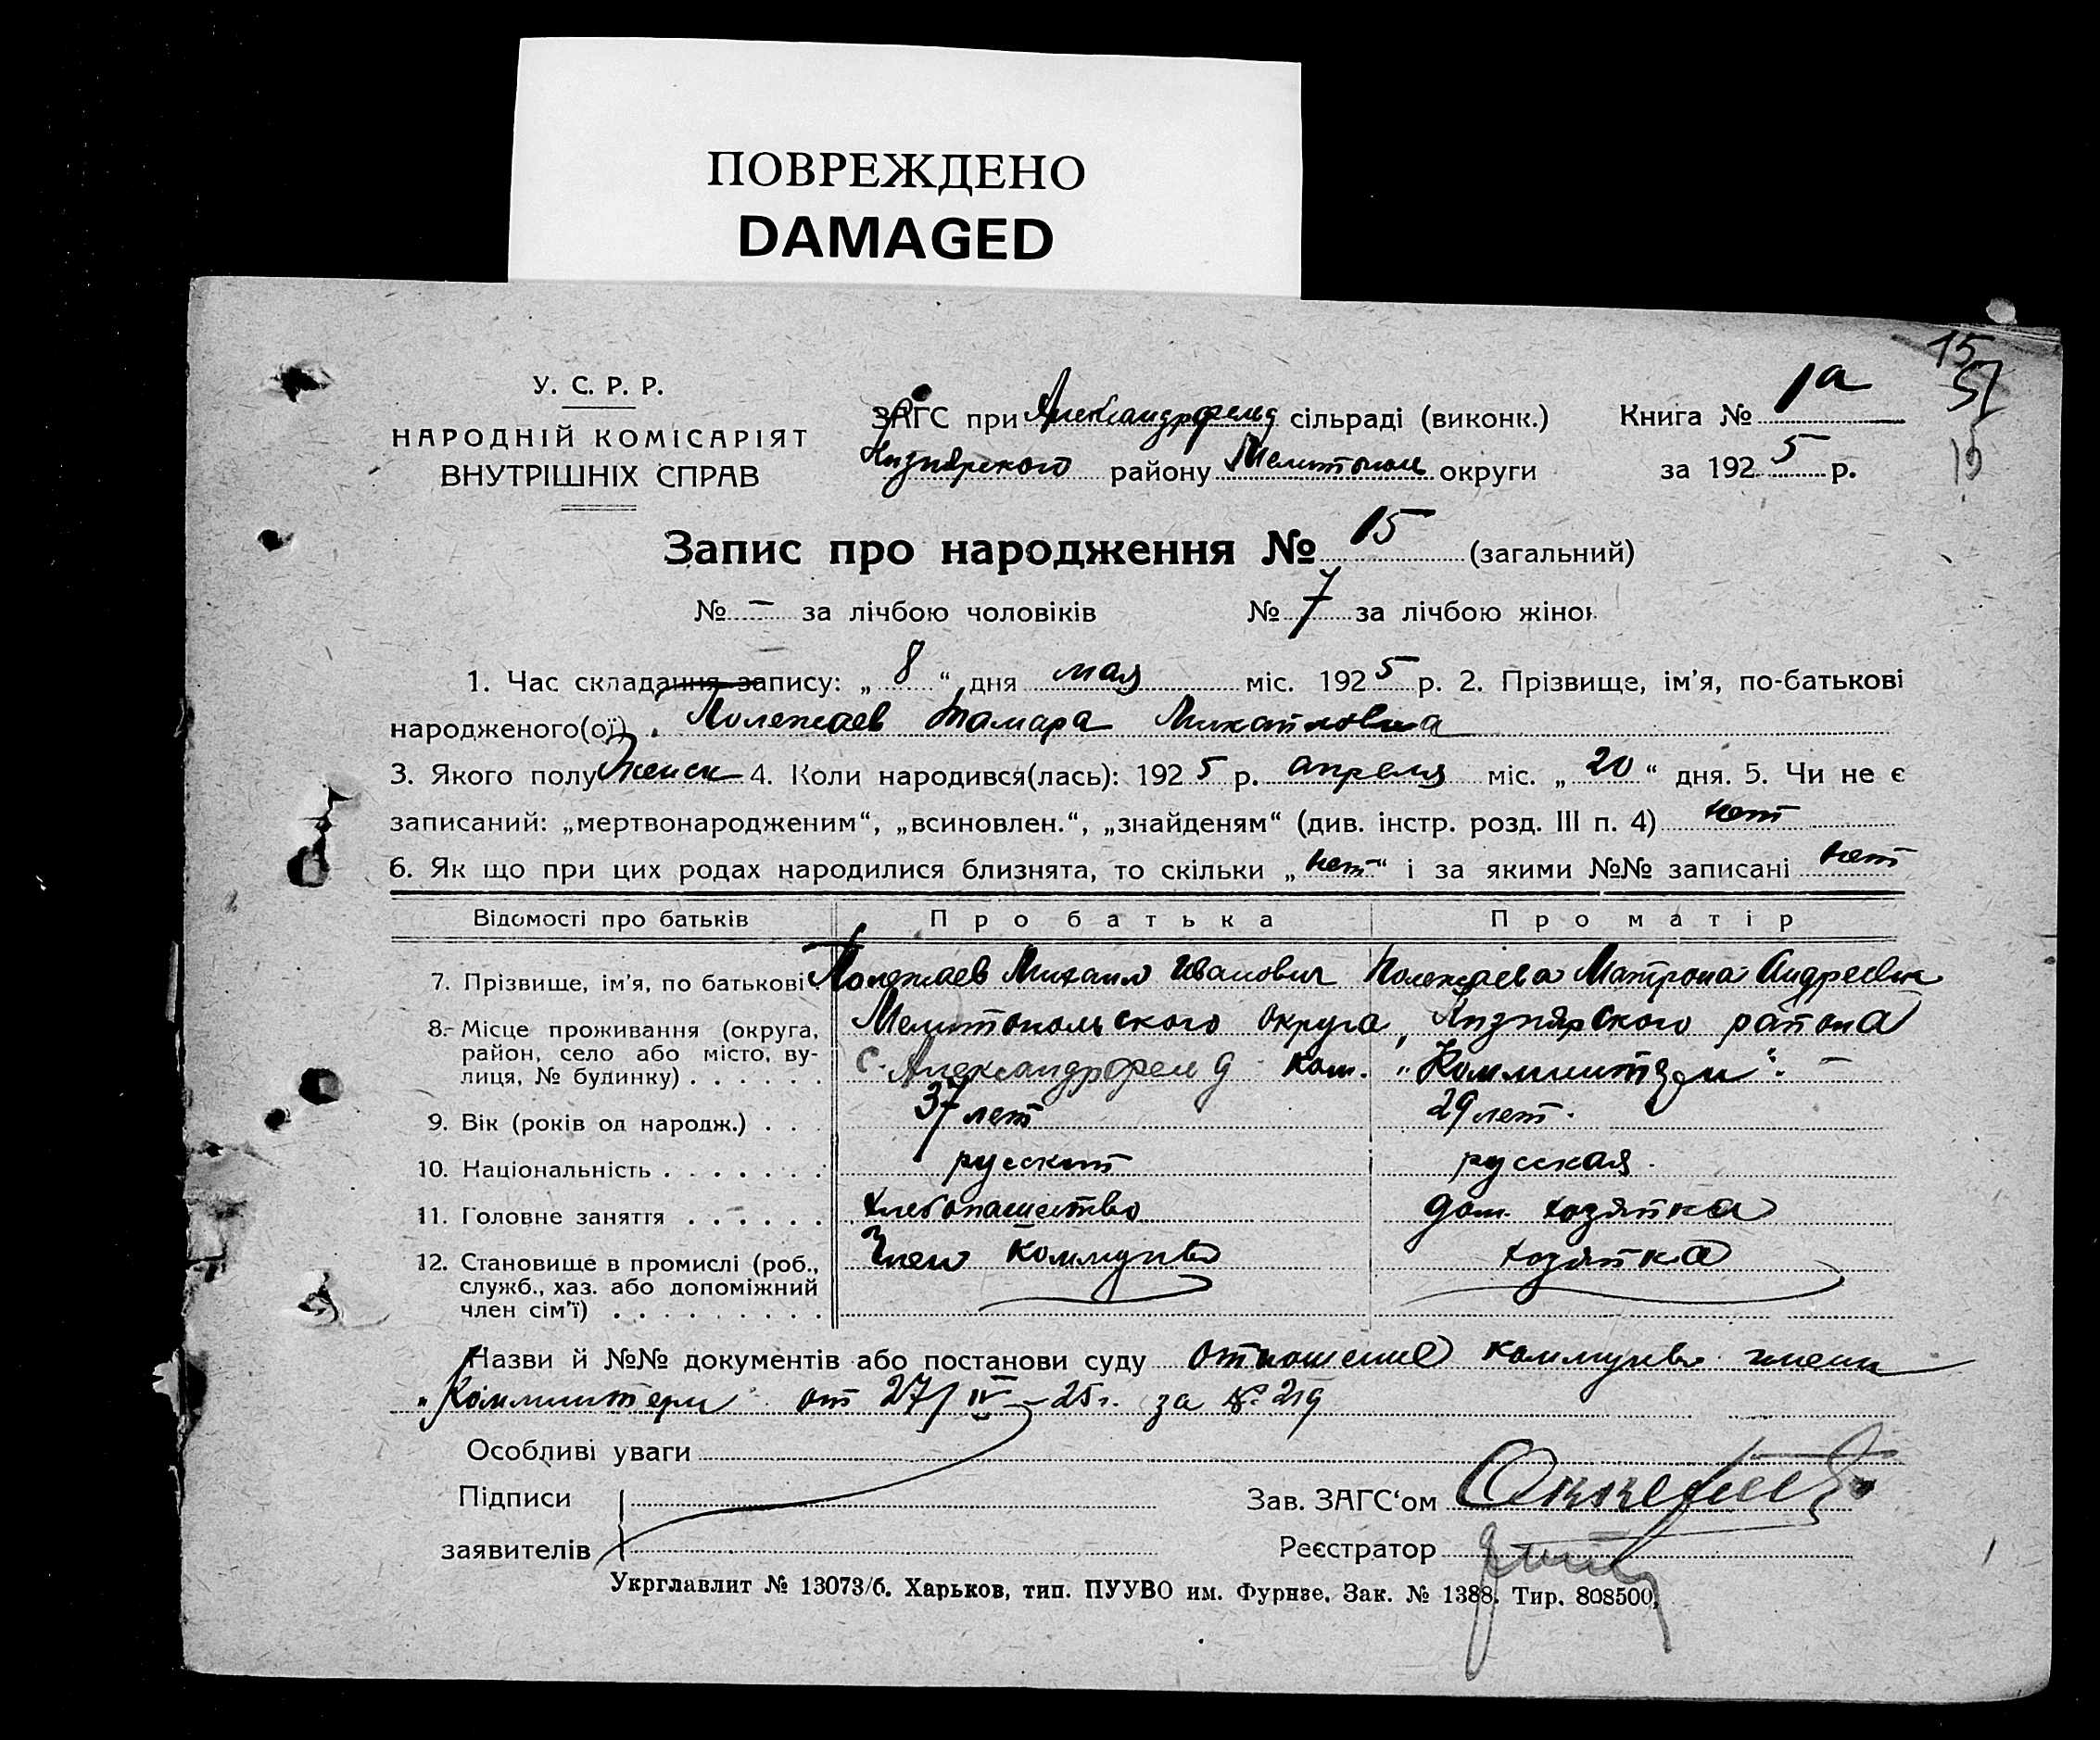 ПОВРЕЖДЕНО
DAMAGED
15
51
15
У. С. Р. Р.
НАРОДНІЙ КОМІСАРІЯТ
ВНУТРІШНІХ СПРАВ
ЗАГС при Александрофельд сільраді (виконк.) Книга № 1а
району Мелитополь округи за 1925 р.
Запис про народження № 15 (загальний)
№ – за лічбою чоловіків № 7 за лічбою жінок
1. Час складання запису: „ 8 “ дня мая міс. 1925 р. 2. Прізвище, ім’я, по-батькові
народженого(ої) Полежаев Тамара Михайловна
3. Якого полу Женск 4. Коли народився(лась): 1925 р. апреля міс. „ 20 “ дня. 5. Чи не є
записаний: „мертвонародженим“, „всиновлен.“, „знайденям“ (див. інстр. розд. III п. 4) нет
6. Як що при цих родах народилися близнята, то скільки „ нет “ і за якими №№ записані нет
Відомості про батьків Про батька Про матір
7. Прізвище, ім’я, по батькові. Полежаев Михаил Иванович Полежаева Матрона Андреевн
8. Місце проживання (округа, Мелитопольского округа, района
район, село або місто, ву- с. Александрофельд ком. „Комминтерн“. –
лиця, № будинку) . . . . . .
9. Вік (років од народж.) . . . 37 лет 29 лет.
10. Національність . . . . . . . русский русская.
11. Головне заняття . . . . . . хлебопашество дом. хозяйка
12. Становище в промислі (роб., Член Коммуны хозяйка
служб., хаз. або допоміжний
член сім’ї) . . . . . . . . .
Назви й №№ документів або постанови суду отношение коммуны имени
„Комминтерн“ от 27/IV – 25 г. за № 219
Особливі уваги
Підписи Зав. ЗАГС‘ом
заявителів Реєстратор
Укрглавлит № 13073/б. Харьков, тип. ПУУВО им. Фрунзе. Зак. № 1388. Тир. 808500.